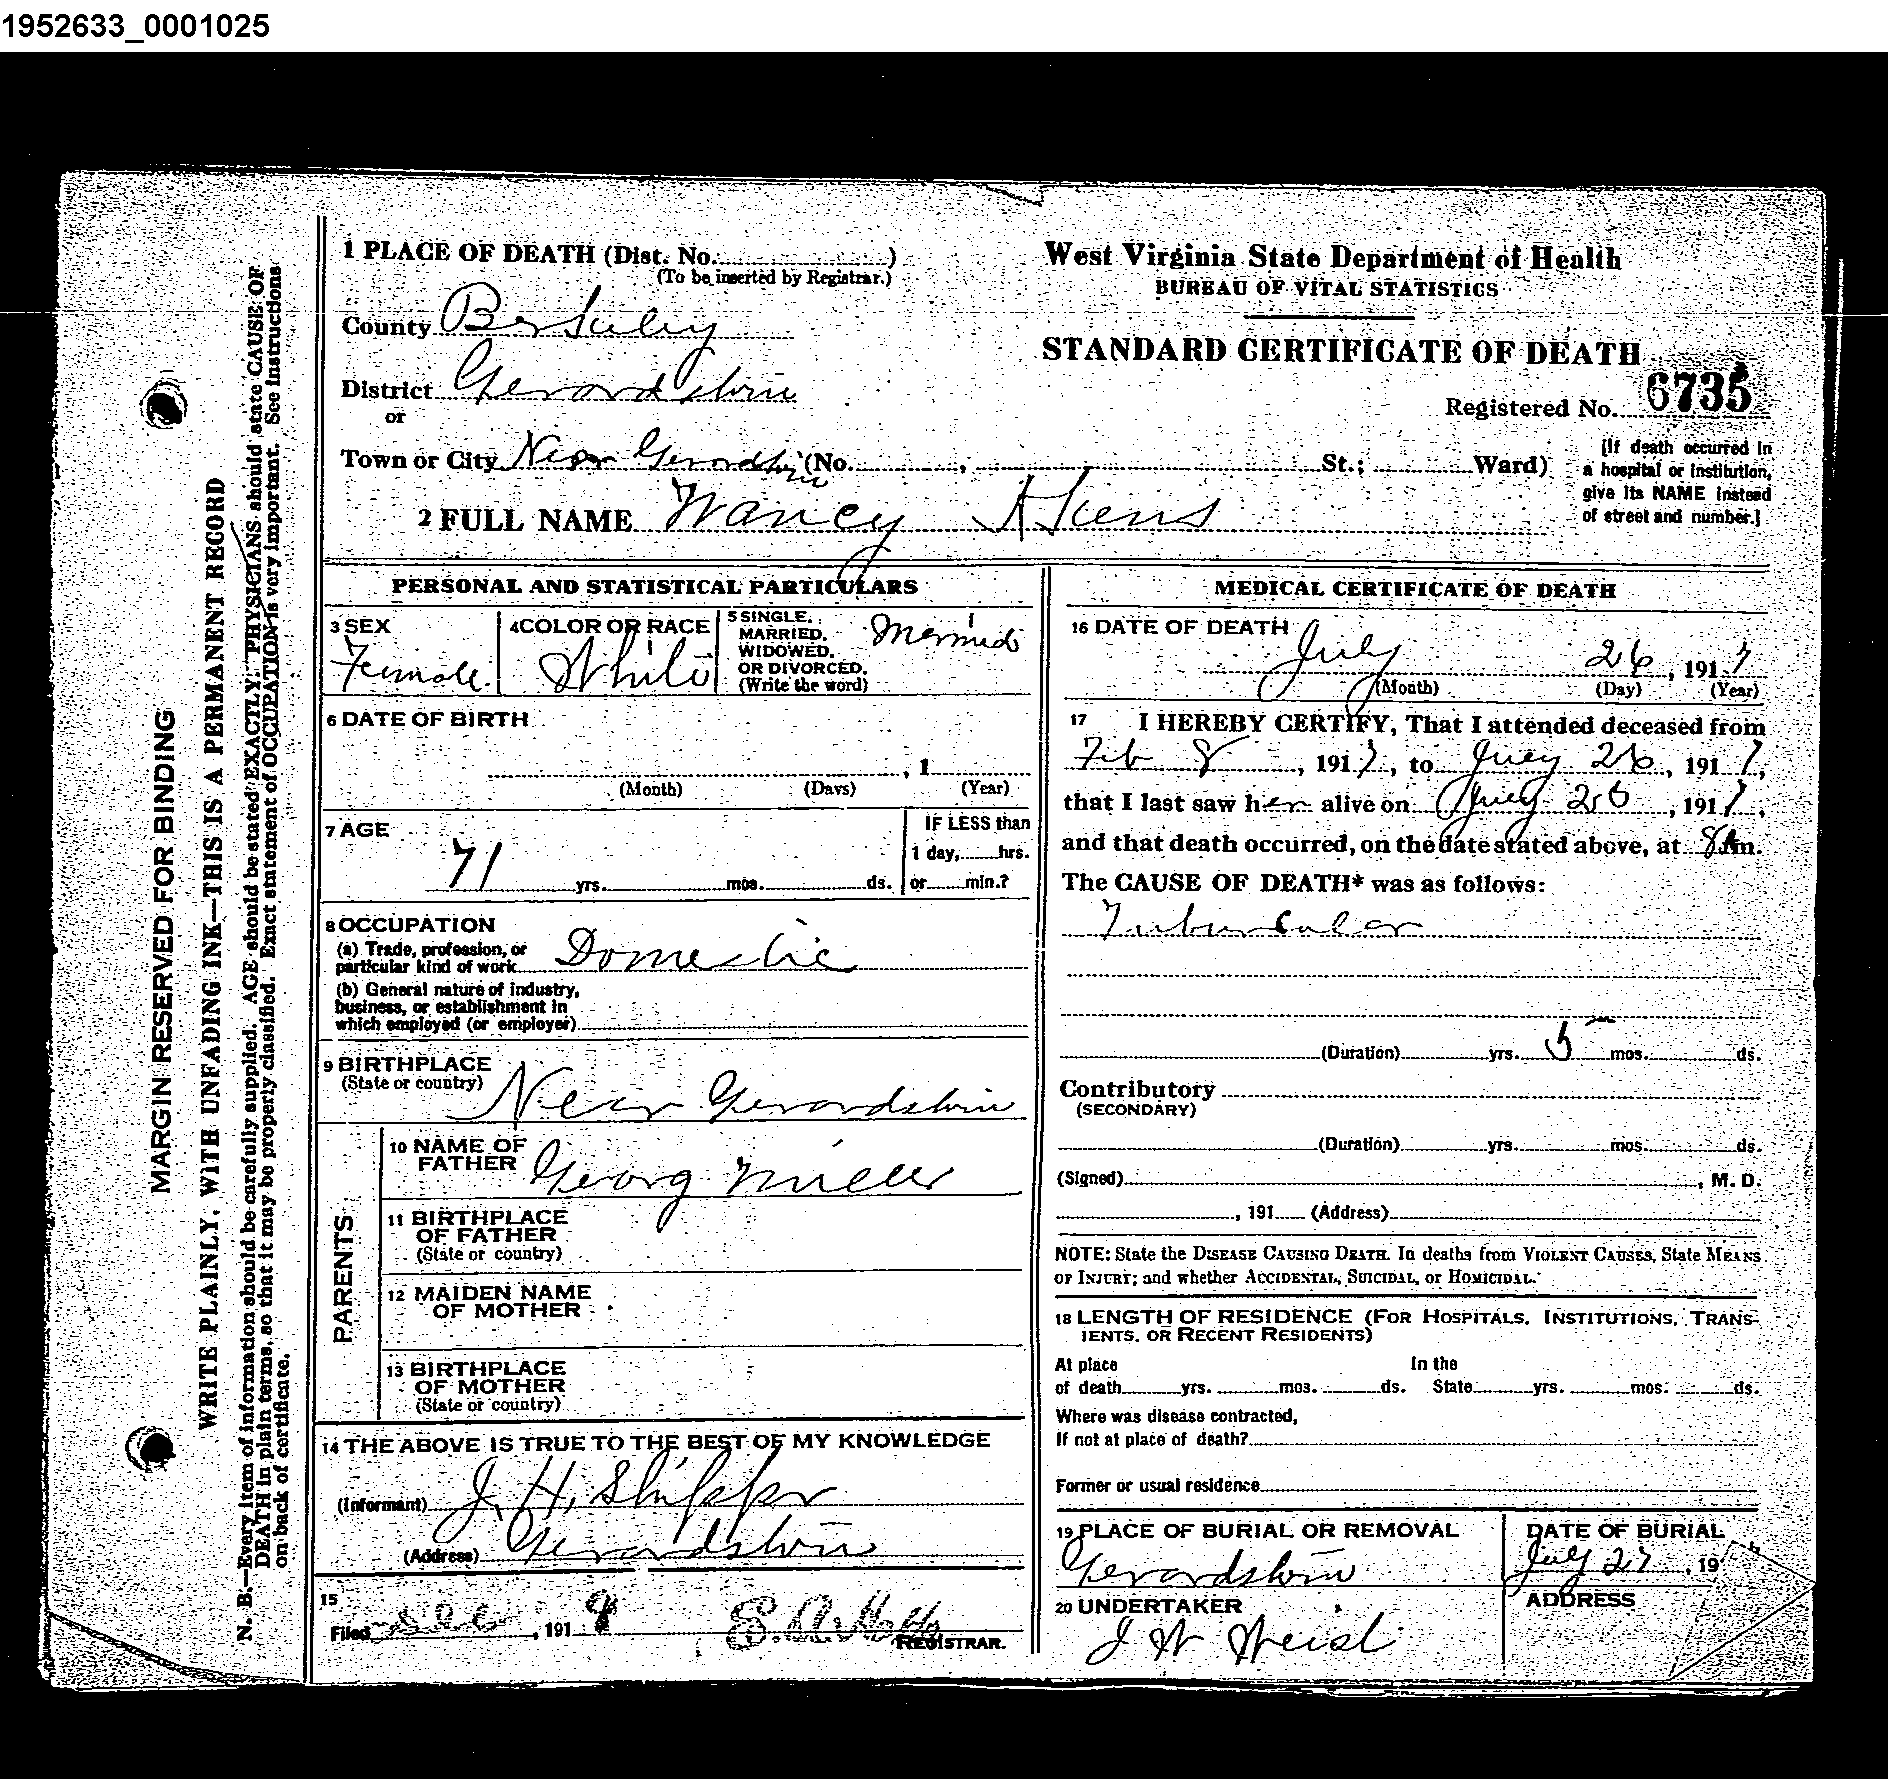 1952633_0001025
MARGIN RESERVED FOR BINDING
WRITE PLAINLY, WITH UNFADING INK—THIS IS A PERMANENT RECORD
N. B.—Every item of information should be carefully supplied. AGE should be stated EXACTLY. PHYSICIANS should state CAUSE OF
DEATH in plain terms, so that it may be properly classified. Exact statement of OCCUPATION is very important. See instructions
on back of certificate.
1 PLACE OF DEATH (Dist. No. )
(To be inserted by Registrar.)
County Berkeley
District Gerardstown
or
Town or City Near Gerardstown (No. , St.; Ward)
2 FULL NAME Nancy
West Virginia State Department of Health
BUREAU OF VITAL STATISTICS
STANDARD CERTIFICATE OF DEATH
Registered No. 6735
[If death occurred in
a hospital or institution,
give its NAME instead
of street and number.]
PERSONAL AND STATISTICAL PARTICULARS
3 SEX
Female
4 COLOR OR RACE
White
5 SINGLE,
MARRIED,
WIDOWED,
OR DIVORCED,
(Write the word)
Married
6 DATE OF BIRTH
, 1
(Month) (Days) (Year)
7 AGE
71 yrs. mos. ds.
IF LESS than
1 day, hrs.
or min.?
8 OCCUPATION
(a) Trade, profession, or
particular kind of work Domestic
(b) General nature of industry,
business, or establishment in
which employed (or employer)
9 BIRTHPLACE
(State or country) Near Gerardstown
PARENTS
10 NAME OF
FATHER Georg Miller
11 BIRTHPLACE
OF FATHER
(State or country)
12 MAIDEN NAME
OF MOTHER
13 BIRTHPLACE
OF MOTHER
(State or country)
14 THE ABOVE IS TRUE TO THE BEST OF MY KNOWLEDGE
(Informant) J. H.
(Address) Gerardstown
15
Filed , 191
REGISTRAR.
MEDICAL CERTIFICATE OF DEATH
16 DATE OF DEATH
July 26, 1917
(Month) (Day) (Year)
17 I HEREBY CERTIFY, That I attended deceased from
Feb 8, 1917, to July 26, 1917,
that I last saw her alive on July 26, 1917,
and that death occurred, on the date stated above, at 8 A m.
The CAUSE OF DEATH* was as follows:
Tubercular
(Duration) yrs. 5 mos. ds.
Contributory
(SECONDARY)
(Duration) yrs. mos. ds.
(Signed) , M. D.
, 191 (Address)
NOTE: State the DISEASE CAUSING DEATH. In deaths from VIOLENT CAUSES, State MEANS
OF INJURY; and whether ACCIDENTAL, SUICIDAL, or HOMICIDAL.
18 LENGTH OF RESIDENCE (FOR HOSPITALS, INSTITUTIONS, TRANS-
IENTS, OR RECENT RESIDENTS)
At place In the
of death yrs. mos. ds. State yrs. mos. ds.
Where was disease contracted,
If not at place of death?
Former or usual residence
19 PLACE OF BURIAL OR REMOVAL
Gerardstown
DATE OF BURIAL
July 27, 19
20 UNDERTAKER
ADDRESS